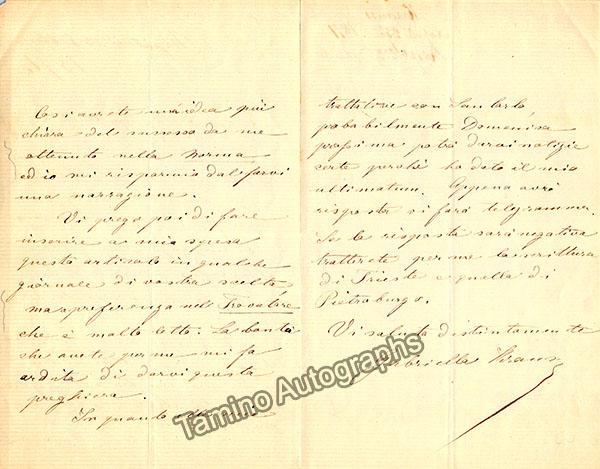 Così avrete una idea più
chiara del successo da me
ottenuto nella Norma
ed io mi risparmio dal farvi
una narrazione.
Vi prego poi di fare
inserire a mia spesa
questo articolo in qualche
giornale di vostra scelta
ma a preferenza nel Trovatore
che è molto letto. La bontà
che avete per me mi fa
ardita di darvi questa
preghiera.
In quanto alle
trattative con San Carlo,
probabilmente Domenica
prossima potrò darvi notizie
certe perchè ho dato il mio
ultimatum. Appena avrò
risposta vi farò telegramma.
Se la risposta sarà negativa
tratterete per me la scrittura
di Trieste e quella di
Pietroburgo.
Vi saluto distintamente
Gabriella Krauss
Tamino Autographs